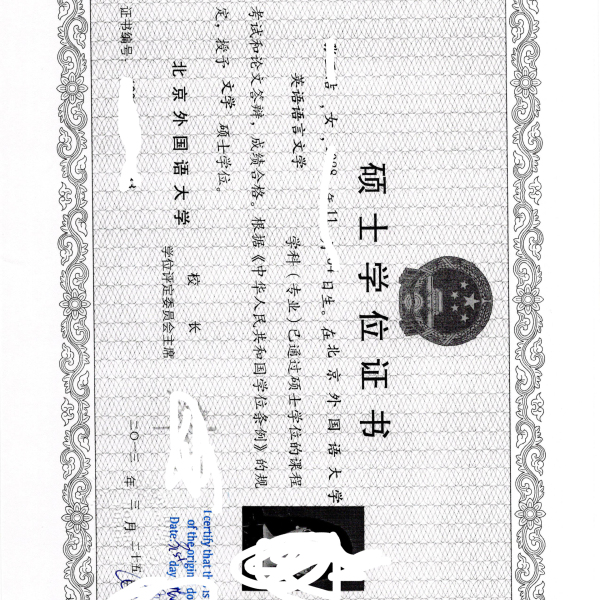 硕士学位证书
，女，
年11
日生。在北京外国语大学
英语语言文学
学科（专业）已通过硕士学位的课程
考试和论文答辩，成绩合格。根据《中华人民共和国学位条例》的规
定，授予 文学 硕士学位。
北京外国语大学
校 长
学位评定委员会主席
证书编号：
二〇一三 年 三 月 二十五
I certify that th is
of the origin do
Date: day